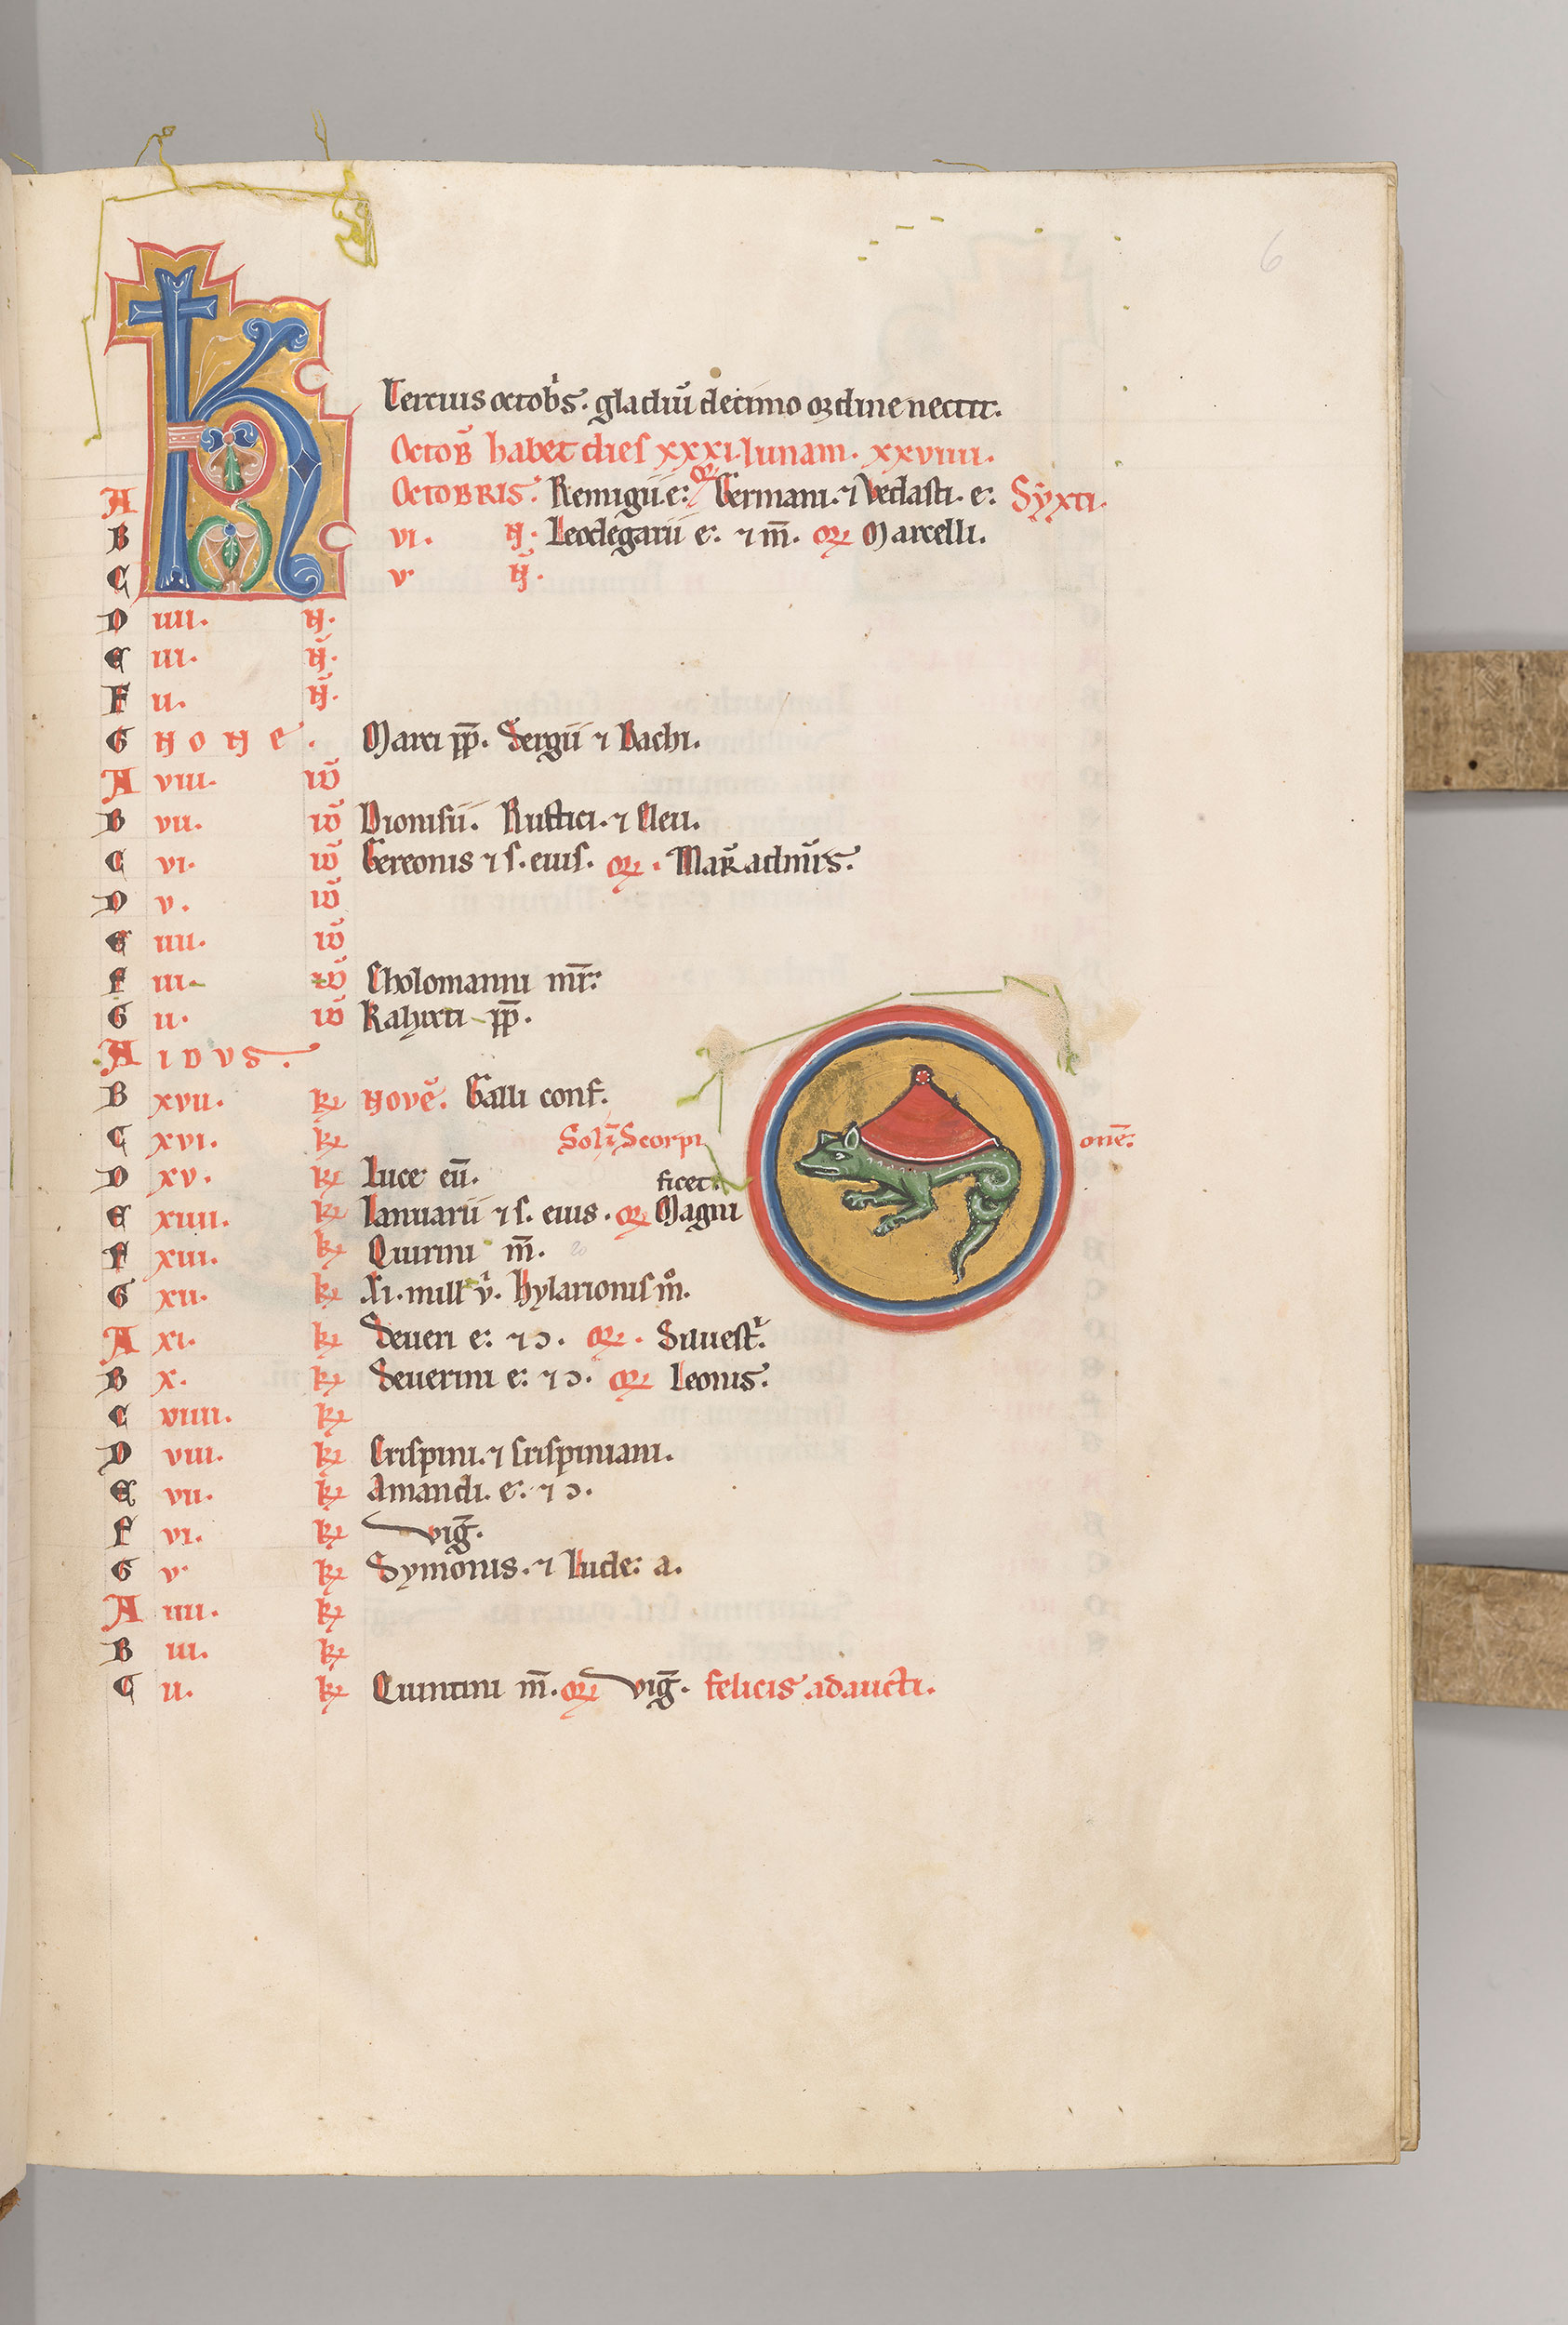 6
KL Tercius octob̾s. gladiū decimo ordine nectit.
Octob̄ habet dies xxxi. lunam. xxviiii.
A Octobris. Remigii e: Germani. ⁊ Vedasti. e: Syxti.
B vi. N̄. Leodegarii e: ⁊ m̄. Marcelli.
C v. N̄.
D iiii. N̄.
E iii. N̄.
F ii. N̄.
G None. Marci pp̄. Sergii ⁊ Bachi.
A viii. id̄
B vii. id̄ Dionisii. Rustici. ⁊ Eleu.
C vi. id̄ Gereonis ⁊ s. eius.
D v. id̄
E iiii. id̄
F iii. id̄ Cholomanni mr̄:
G ii. id̄ Kalixti pp̄.
A idus.
B xvii. kł Novē. Galli conf.
C xvi. kł Sol ī Scorpi onē:
D xv. kł Luce eū. ficet.
E xiiii. kł Ianuarii ⁊ s. eius. Magni
F xiii. kł Quirini m̄.
G xii. kł Xi. mill v̄. Hylarionis m̊.
A xi. kł Seueri e: ⁊ ↄ. Siluest̾.
B x. kł Seuerini e: ⁊ ↄ. Leonis.
C viiii. kł
D viii. kł Crispini. ⁊ Crispiniani.
E vii. kł Amandi. e: ⁊ ↄ.
F vi. kł viḡ.
G v. kł Symonis. ⁊ Iude: a.
A iiii. kł
B iii. kł
C ii. kł Quintini m̄. viḡ. felicis adaucti.